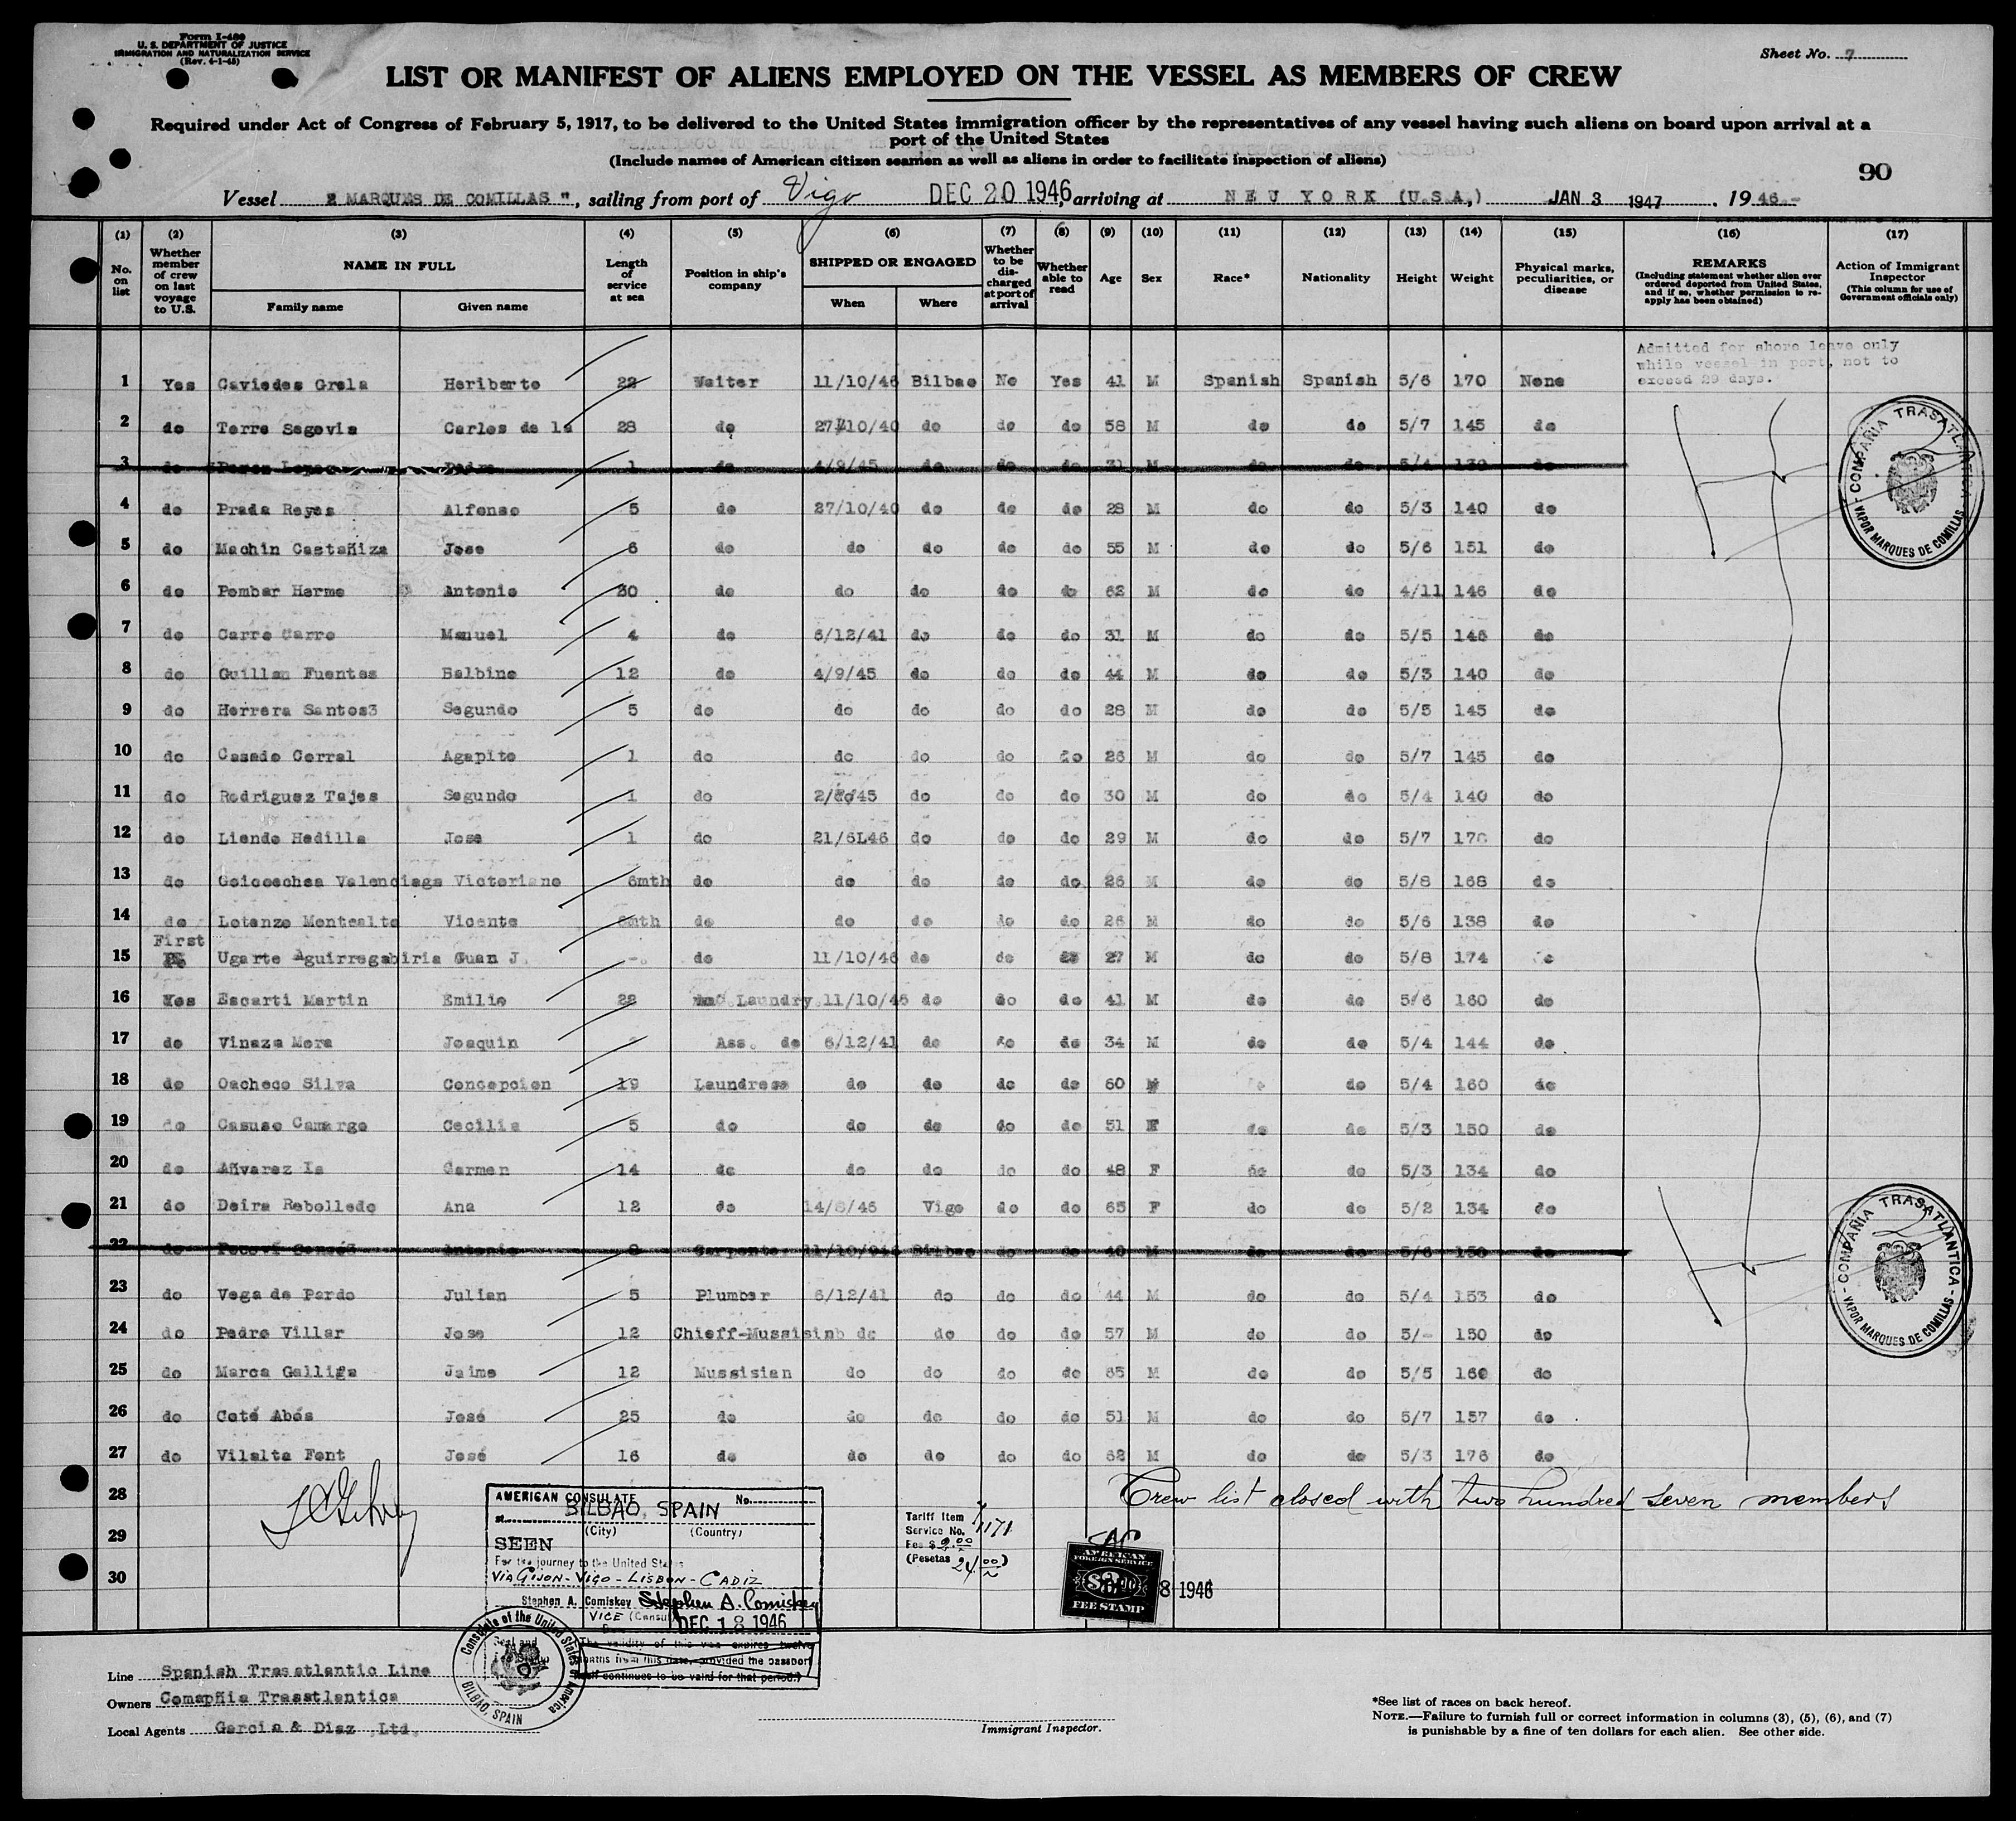 Form I-489
U. S. DEPARTMENT OF JUSTICE
IMMIGRATION AND NATURALIZATION SERVICE
(Rev. 4-1-45)
Sheet No. 7
LIST OR MANIFEST OF ALIENS EMPLOYED ON THE VESSEL AS MEMBERS OF CREW
Required under Act of Congress of February 5, 1917, to be delivered to the United States immigration officer by the representatives of any vessel having such aliens on board upon arrival at a
port of the United States
(Include names of American citizen seamen as well as aliens in order to facilitate inspection of aliens)
90
Vessel " MARQUES DE COMILLAS ", sailing from port of Vigo DEC 20 1946, arriving at NEU YORK (U.S.A,) JAN 3 1947 , 1946.-
(1) (2) (3) (4) (5) (6) (7) (8) (9) (10) (11) (12) (13) (14) (15) (16) (17)
No. on list
Whether member of crew on last voyage to U.S.
NAME IN FULL
Family name Given name
Length of service at sea
Position in ship's company
SHIPPED OR ENGAGED
When Where
Whether to be discharged at port of arrival
Whether able to read
Age Sex Race* Nationality Height Weight
Physical marks, peculiarities, or disease
REMARKS
(Including statement whether alien ever ordered deported from United States, and if so, whether permission to reapply has been obtained)
Action of Immigrant Inspector
(This column for use of Government officials only)
Admitted for shore leave only
while vessel in port, not to
exceed 29 days.
1 Yes Caviedes Grela Heriberto 22 Waiter 11/10/46 Bilbao No Yes 41 M Spanish Spanish 5/6 170 None
2 do Torre Segovia Carlos de la 28 do 27/10/40 do do do 58 M do do 5/7 145 do
3 do 1 do 4/9/45 do do do 31 M do do 5/4 130 do
4 do Prada Reyes Alfonso 5 do 27/10/40 do do do 28 M do do 5/3 140 do
5 do Machin Castañiza Jose 6 do do do do do 55 M do do 5/6 151 do
6 do Pombar Hermo Antonio 30 do do do do do 62 M do do 4/11 146 do
7 do Carro Carro Manuel 4 do 6/12/41 do do do 31 M do do 5/5 146 do
8 do Guillan Fuentes Balbino 12 do 4/9/45 do do do 44 M do do 5/3 140 do
9 do Herrera Santos3 Segundo 5 do do do do do 28 M do do 5/5 145 do
10 do Casado Corral Agapito 1 do do do do do 26 M do do 5/7 145 do
11 do Rodriguez Tajes Segundo 1 do 2/do/45 do do do 30 M do do 5/4 140 do
12 do Liendo Hedilla Jose 1 do 21/6L46 do do do 29 M do do 5/7 do
13 do Goicoechea Valenciaga Victoriano 6mth do do do do do 26 M do do 5/8 168 do
14 do Lotanzo Montealto Vicente 6mth do do do do do 26 M do do 5/6 138 do
15 First Ugarte Aguirregabiria Guan J. -. do 11/10/46 do do 27 M do do 5/8 174 do
16 Yes Escarti Martin Emilio 22 Laundry.11/10/46 do do do 41 M do do 5/6 160 do
17 do Vinaza Mora Joaquin Ass. do 6/12/41 do do do 34 M do do 5/4 144 do
18 do Oacheco Silva Concepcion 19 Laundress do do do do 60 do 5/4 160 do
19 do Casuso Camargo Cecilia 5 do do do do do 51 F do do 5/3 150 do
20 do Añvarez Is Carmen 14 do do do do do 48 F do do 5/3 134 do
21 do Deira Rebolledo Ana 12 do 14/8/46 Vigo do do 65 F do do 5/2 134 do
22 do Antonio Carpenter Bilbao do do 40 M do do 5/6 do
23 do Vega de Pardo Julian 5 Plumber 6/12/41 do do do 44 M do do 5/4 153 do
24 do Pedro Villar Jose 12 Chieff-Mussisinb do do do do 57 M do do 5/- 150 do
25 do Marca Galliga Jaime 12 Mussisian do do do do 65 M do do 5/5 160 do
26 do Coté Abós José 25 do do do do do 51 M do do 5/7 157 do
27 do Vilalta Font José 16 do do do do do 62 M do do 5/3 176 do
28
29
30
Crew list closed with two hundred seven members
COMPAÑIA TRASATLANTICA
VAPOR MARQUES DE COMILLAS
COMPAÑIA TRASATLANTICA
VAPOR MARQUES DE COMILLAS
AMERICAN CONSULATE No.
at BILBAO, SPAIN
(City) (Country)
SEEN
For the journey to the United States
VIA GIJON-VIGO-LISBON-CADIZ
Stephen A. Comiskey Stephen A. Comiskey
VICE (Consul)
DEC 18 1946
The validity of this visa expires twelve
months from this date, provided the passport
itself continues to be valid for that period.
Consulate of the United States of America
BILBAO, SPAIN
Tariff Item 7
Service No. 1171
Fee $ 2.00
(Pesetas 24.00)
AMERICAN
FOREIGN SERVICE
$2.00
FEE STAMP
8 1946
Line Spanish Trasatlantic Line
Owners Comapñia Trasatlantica
Local Agents Garcia & Diaz ,Ltd,
Immigrant Inspector.
*See list of races on back hereof.
NOTE.—Failure to furnish full or correct information in columns (3), (5), (6), and (7)
is punishable by a fine of ten dollars for each alien. See other side.